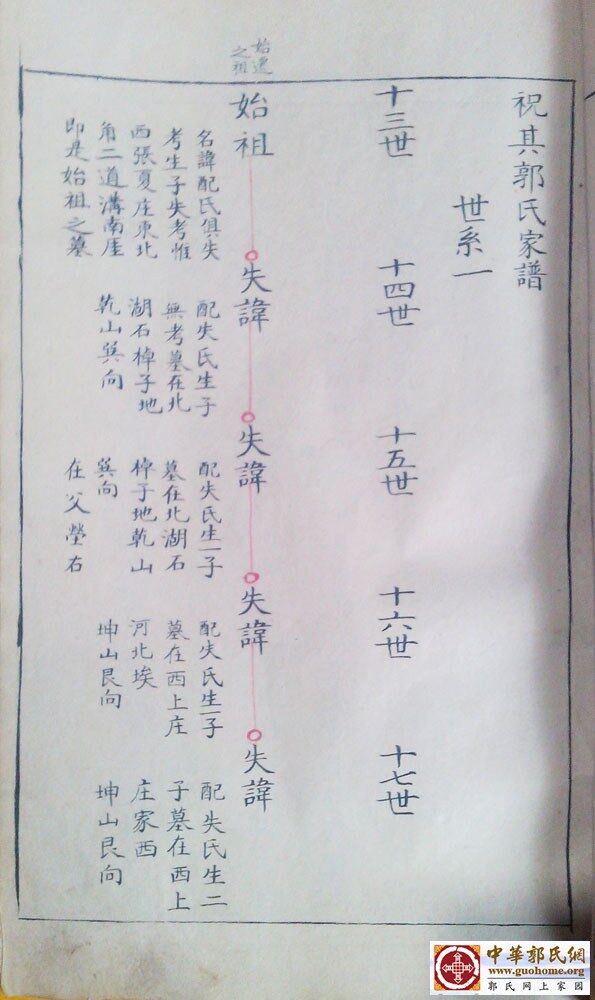 祝其郭氏家譜
世系一
十三世
十四世
十五世
十六世
十七世
始遷
之祖
始祖
名諱配氏俱失
考生子失考惟
西張夏庄東北
角二道溝南崖
即是始祖之墓
失諱
配失氏生子
無考墓在北
湖石棹子地
乾山巽向
失諱
配失氏生一子
墓在北湖石
棹子地乾山
巽向
在父塋右
失諱
配失氏生一子
墓在西上庄
河北埃
坤山艮向
失諱
配失氏生二
子墓在西上
庄家西
坤山艮向
中華郭氏網
www.guohome.org
郭氏网上家园